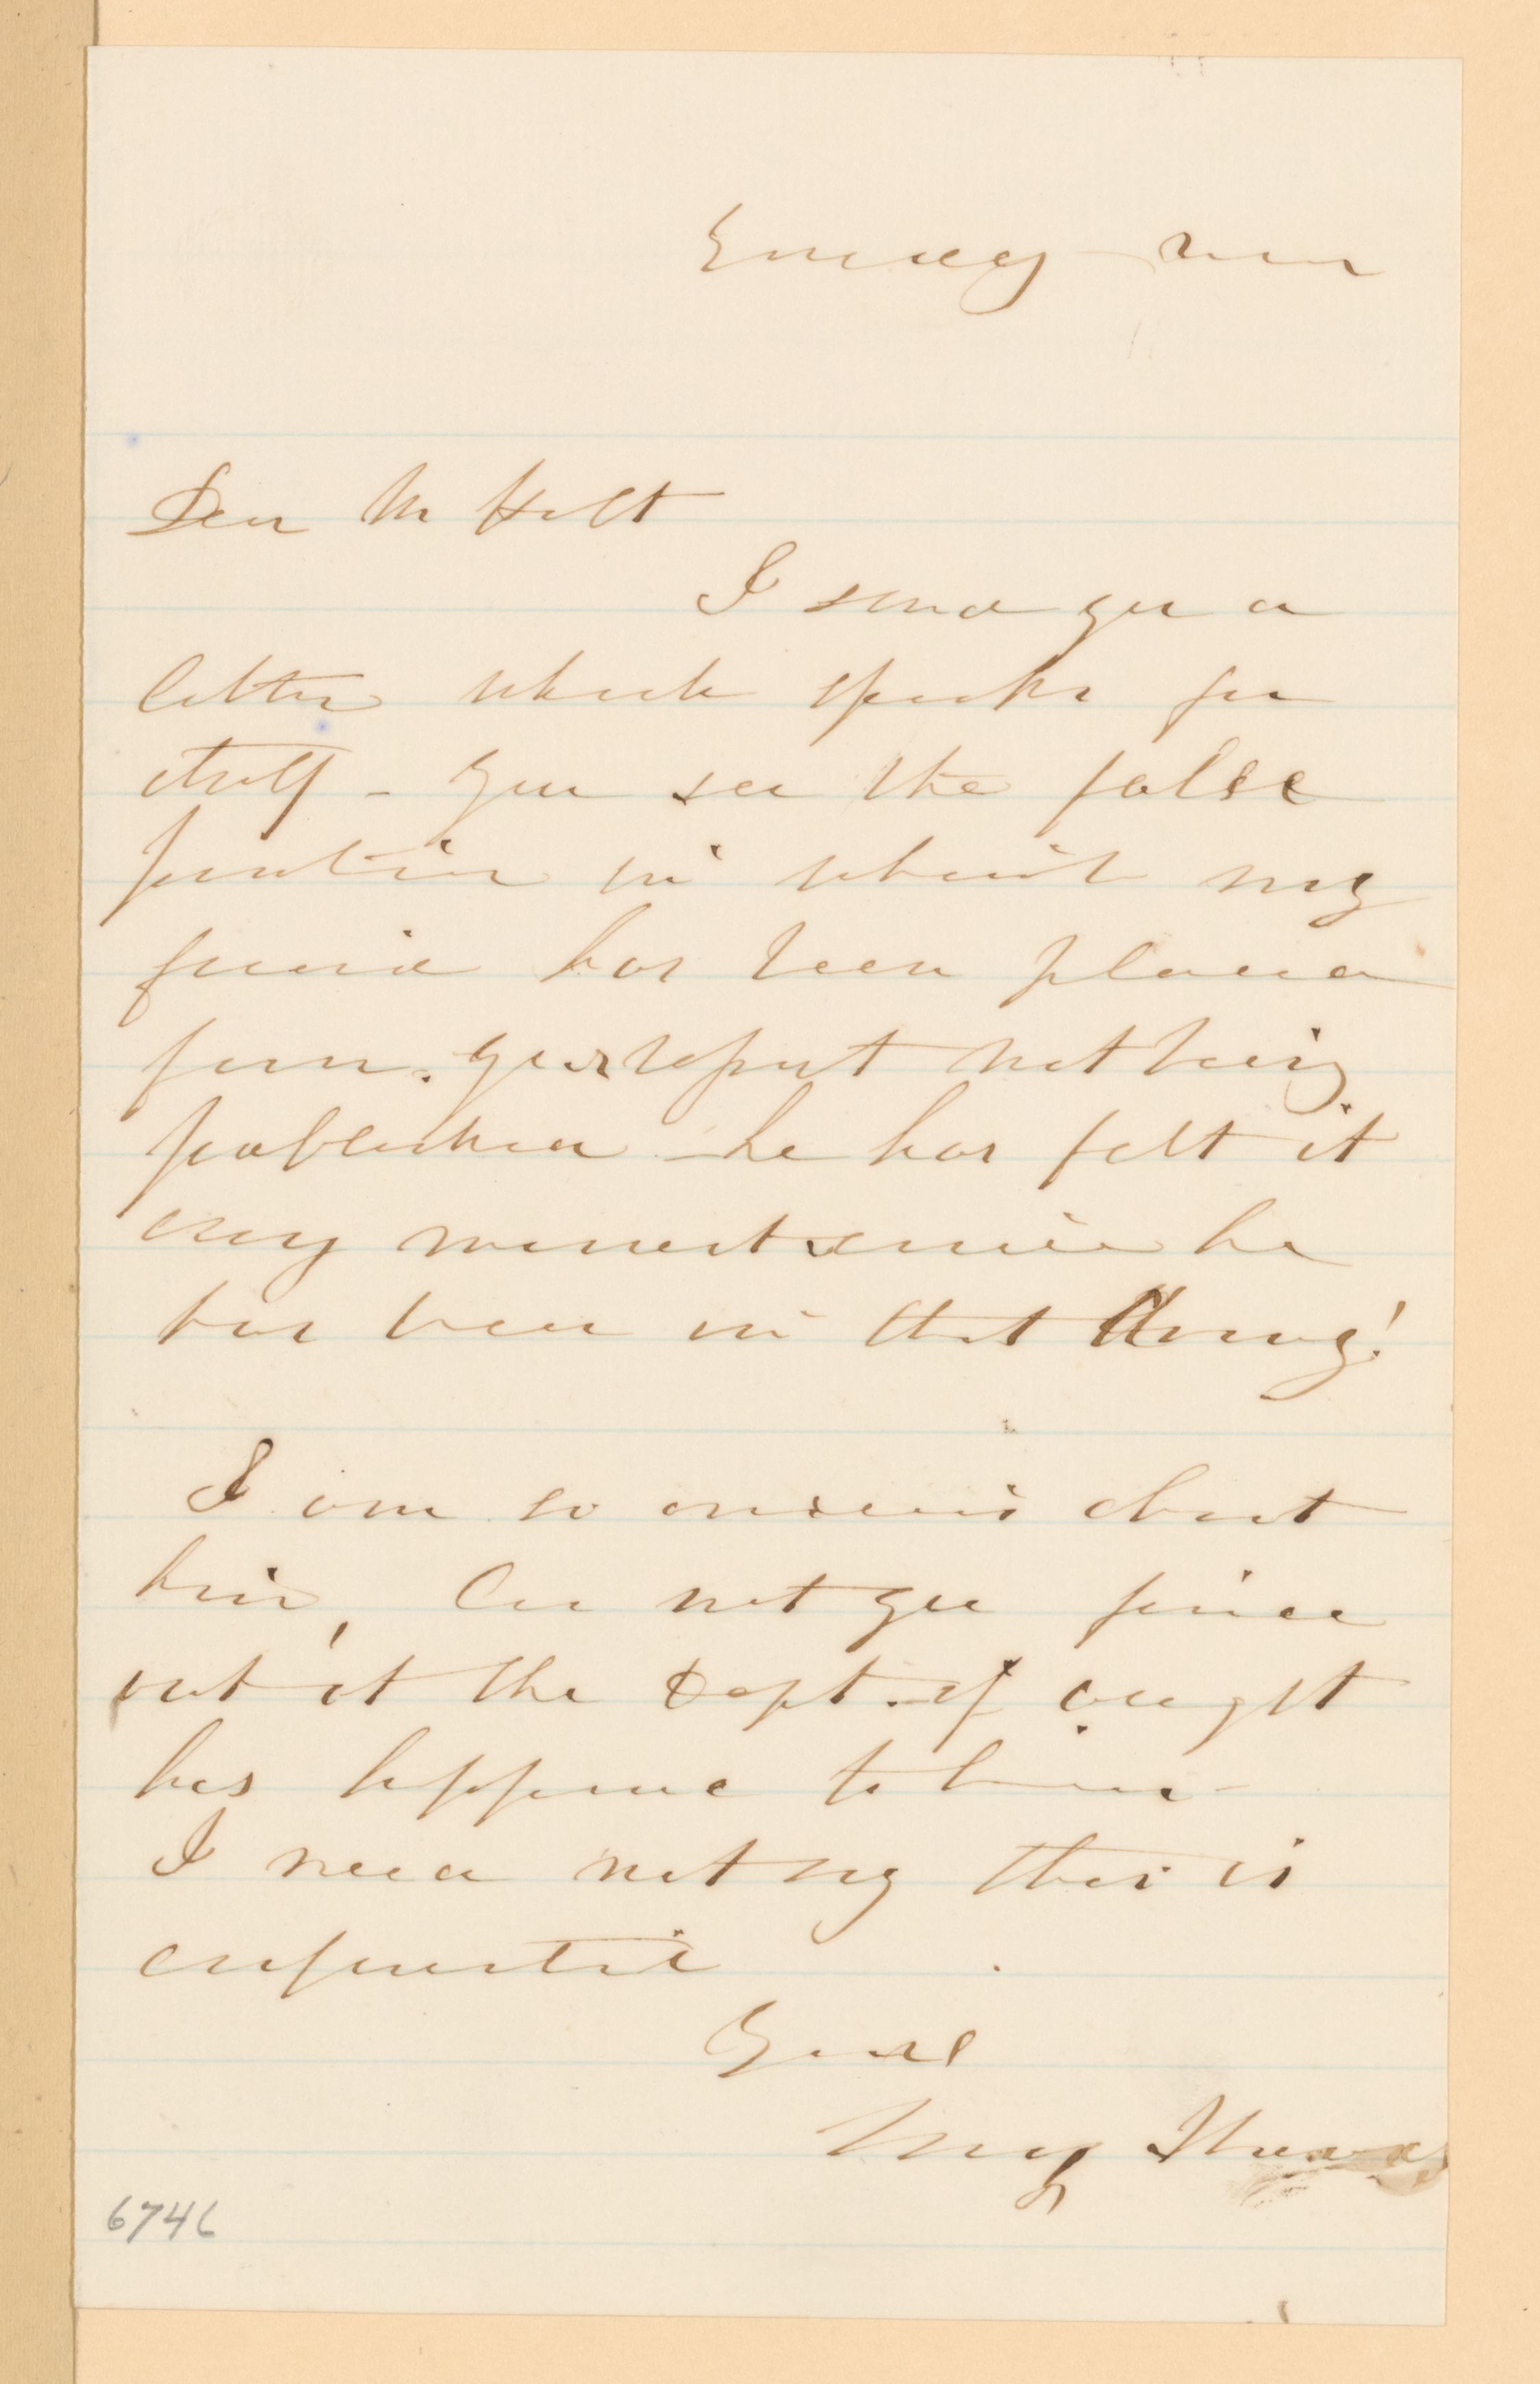 Sunday - noon
Dear Mr Holt
I send you a
letter which speaks for
itself - You see the false
position in which my
friend has been placed
from your report not being
published - he has felt it
every moment since he
has been in that
I am so anxious about
him, Can not you find
out at the Dept. if ought
has happened to him -
I need not say this is
confidential
Yours
Mary
6746